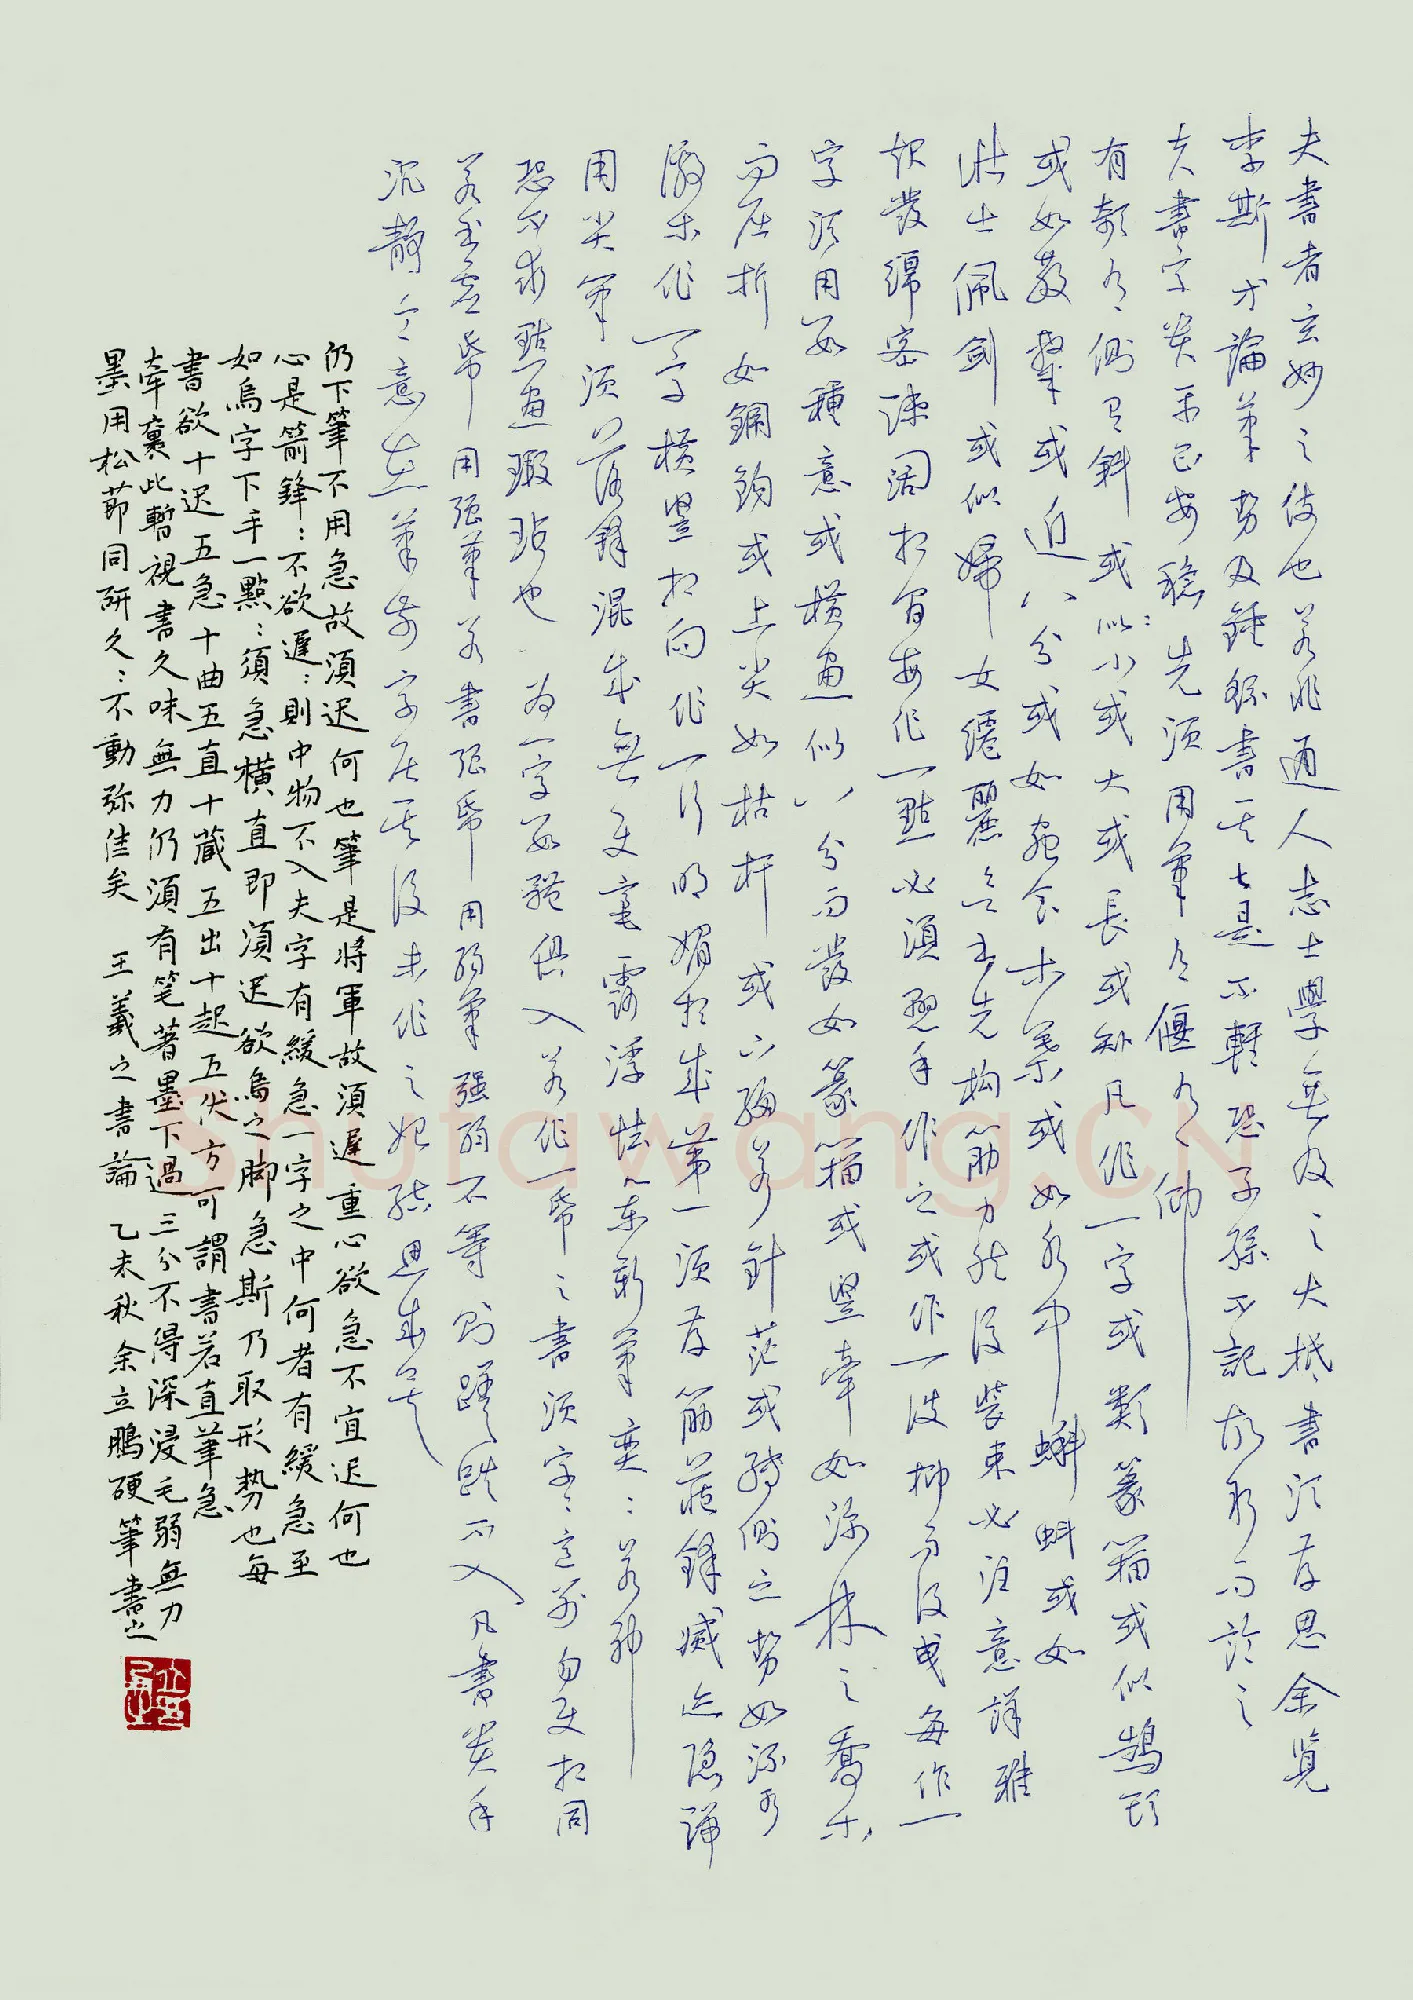 夫書者玄妙之伎也若非通人志士學無及之大抵書須存思余覽
李斯等論筆勢及鍾繇書其是不輕恐子孫不記故敘而論之
夫書字貴平正安穩先須用筆有偃有仰
有攲有側有斜或似小或大或長或短凡作一字或類篆籀或似鵠頭
或如散隸或近八分或如蟲食木葉或如水中蝌蚪或如
壯士佩劍或似婦女纖麗欲書先构筋力然後裝束必注意詳雅
起發綿密疎闊相間每作一點必須懸手作之或作一波抑而後曳每作一
字須用數種意或横畫似八分而發如篆籀或竪牽如深林之喬木
而屈折如鋼鉤或上尖如枯杆或下細若針茫或轉側之勢如流水
激水作一字横竪相向作一行明媚相成第一須存筋藏鋒滅迹隐端
用尖筆須落鋒混成無使毫露浮怯㪯新筆爽:若神
恐不求點畫瑕玷也為一字數體俱入若作一帋之書須字:意别勿使相同
若書虚帋用强筆若書强帋用弱筆强弱不等則蹉跌不入凡書貴乎
沉静令意在筆前字居其後未作之始結思成矣
仍下筆不用急故須迟何也筆是將軍故須遲重心欲急不宜迟何也
心是箭鋒:不欲遲:則中物不入夫字有緩急一字之中何者有緩急至
如烏字下手一點:須急横直即須迟欲烏之脚急斯乃取形勢也每
書欲十迟五急十曲五直十藏五出十起五伏方可謂書若直筆急
牵裹此暫視書久味無力仍須有笔著墨下過三分不得深浸毛弱無力
墨用松節同研久:不動弥佳矣 王羲之書論 乙未秋余立鵬硬筆書之
Shufawang.CN